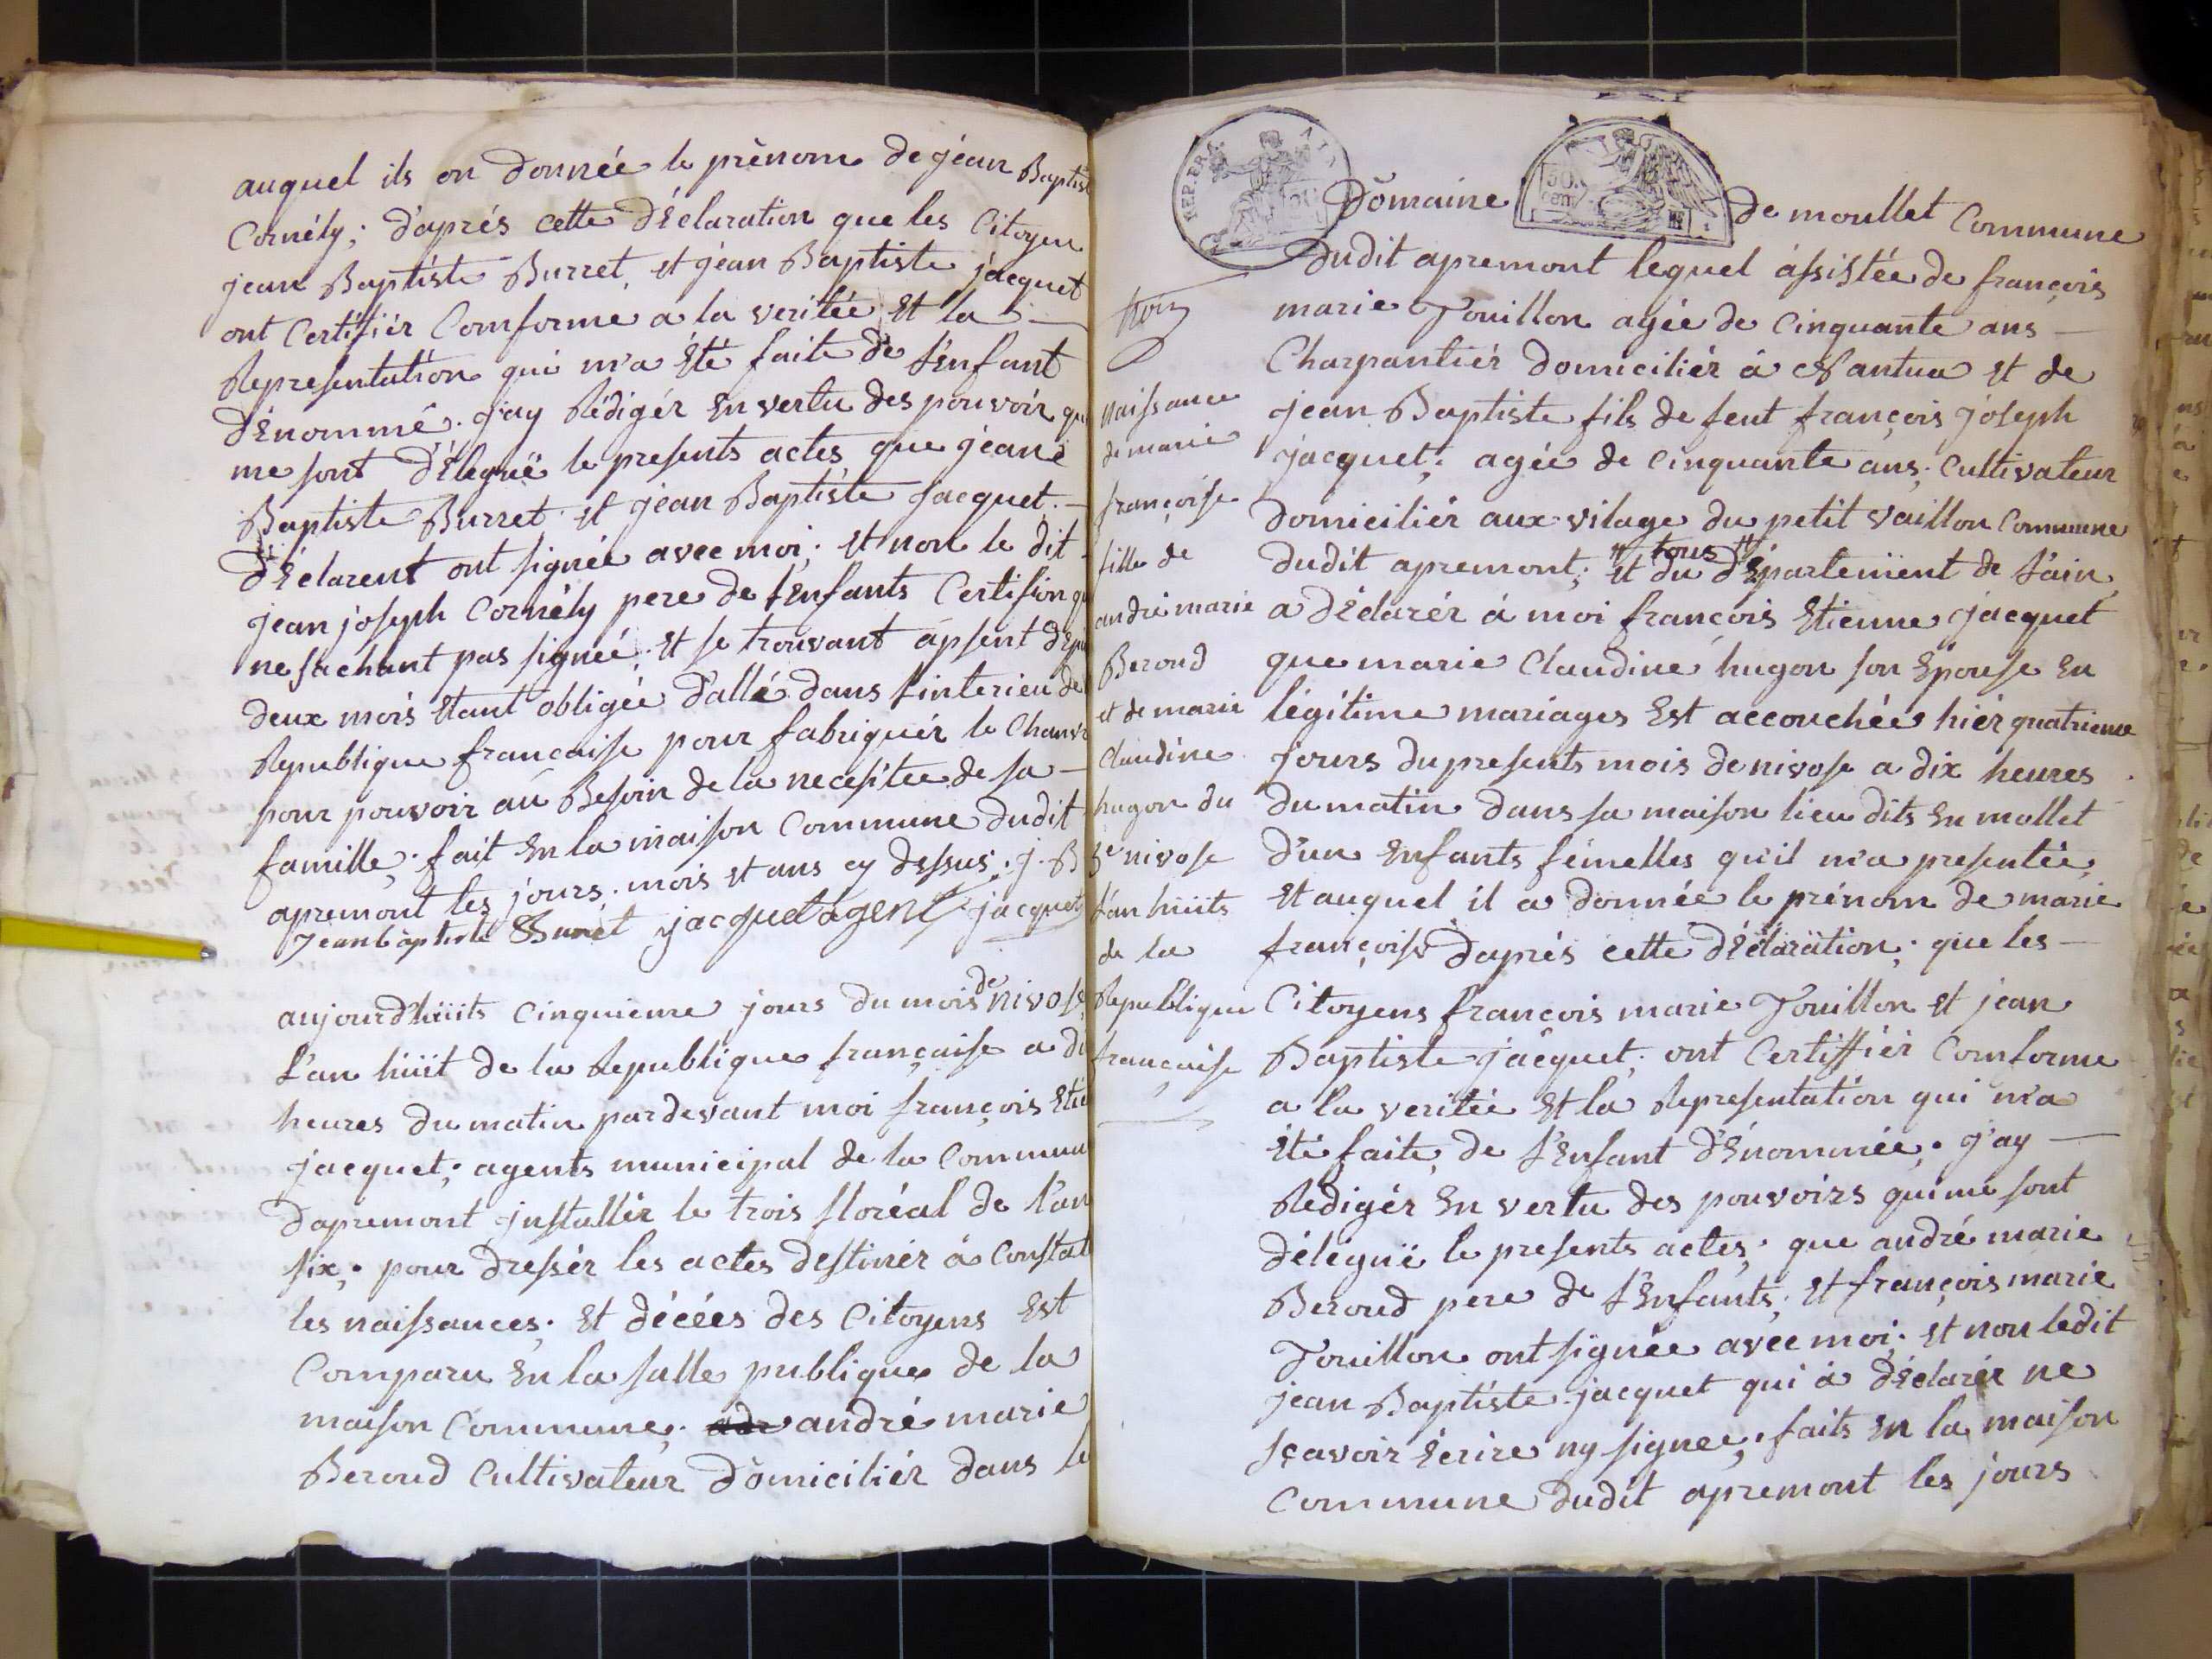 auquel ils on donnée le prènom de jéan Baptist
Cornély; d'aprés cette déclaration que les Citoyen
jean Baptiste Burret, et jéan Baptiste jacquet
ont Certifiér Comforme a la veritée Et la
Representation qui m'a Eté faite de l'Enfant
dénommé. j'ay Rédigér En vertu des pouvoir qu
me sont délegué le presents actes que jéan
Baptiste Burret et jéan Baptiste Jacquet.
déclarent ont signée avec moi; Et non le dit
jean joseph Cornély pere de l'Enfants Certifion qu
ne sachant pas signée; Et se trouvant apsent depu
deux mois Etant obligée d'allé dans l'interieu de
Republique francaise pour fabriquér le Chanvr
pour pouvoir au Besoin de la necesitee de sa
famille; fait En la maison Commune dudit
apremont les jours; mois et ans cy dessus; j. B
Jean baptiste Burret jacquet agent jacquet
aujourd'huits Cinquieme jours du mois de nivose
l'an huit de la Republique française a di
heures du matin pardevant moi françois Etie
jacquet; agents municipal de la Commun
d'apremont jnstallér le trois floréal de l'an
six; pour dressér les actes destinér á Constat
les naissances; Et décées des Citoyens Est
Comparu En la salle publique de la
maison Commune; adr andré marie
Beroud Cultivateur Domiciliér dans le
REP. FRA. AIN
50. cent.
Domaine de moullet Commune
dudit apremont lequel assistée de françois
marie Touillon agée de Cinquante ans
Charpantiér domiciliér à Nantua Et de
jean Baptiste fils de feut françois joseph
jacquet; agée de cinquante ans; Cultivateur
domiciliér aux vilage du petit vaillon Commune
dudit apremont; et tous du département de l'ain
a déclarér á moi françois Etienne jacquet
que marie Claudine hugon son Epouse En
légitime mariages Est accouchée hiér quatrieme
jours du presents mois de nivose a dix heures
du matin dans sa maison lieu dits En mollet
d'un Enfants fémelles qu'il m'a presentée
Et auquel il a donnée le prénom de marie
françoise d'aprés cette déclaration; que les
Citoyens francois marie Touillon et jean
Baptiste jacquet; ont Certiffiér Comforme
a la veritée Et la Representation qui m'a
été faite de l'Enfant dénommée; j'ay
Redigér En vertu des pouvoirs qui me sont
délegué le presents actes; que andré marie
Beroud pere de l'Enfants; Et françois marie
Touillon ont signée avec moi; Et non ledit
jean Baptiste jacquet qui á déclarér ne
sçavoir Ecrire ny signee; faits En la maison
Commune dudit apremont les jours
naissance
de marie
françoise
fille de
andré marie
Beroud
et de marie
Claudine
hugon du
5e nivose
l'an huits
de la
Republique
française